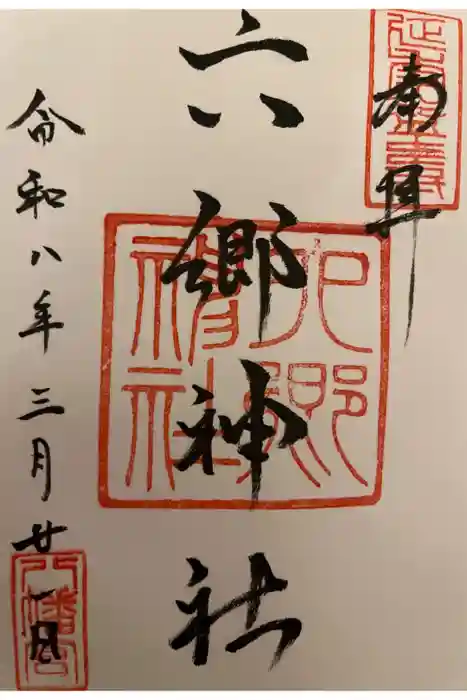 奉拝
六郷神社
六郷
神社
令和八年三月廿一日
八幡宮